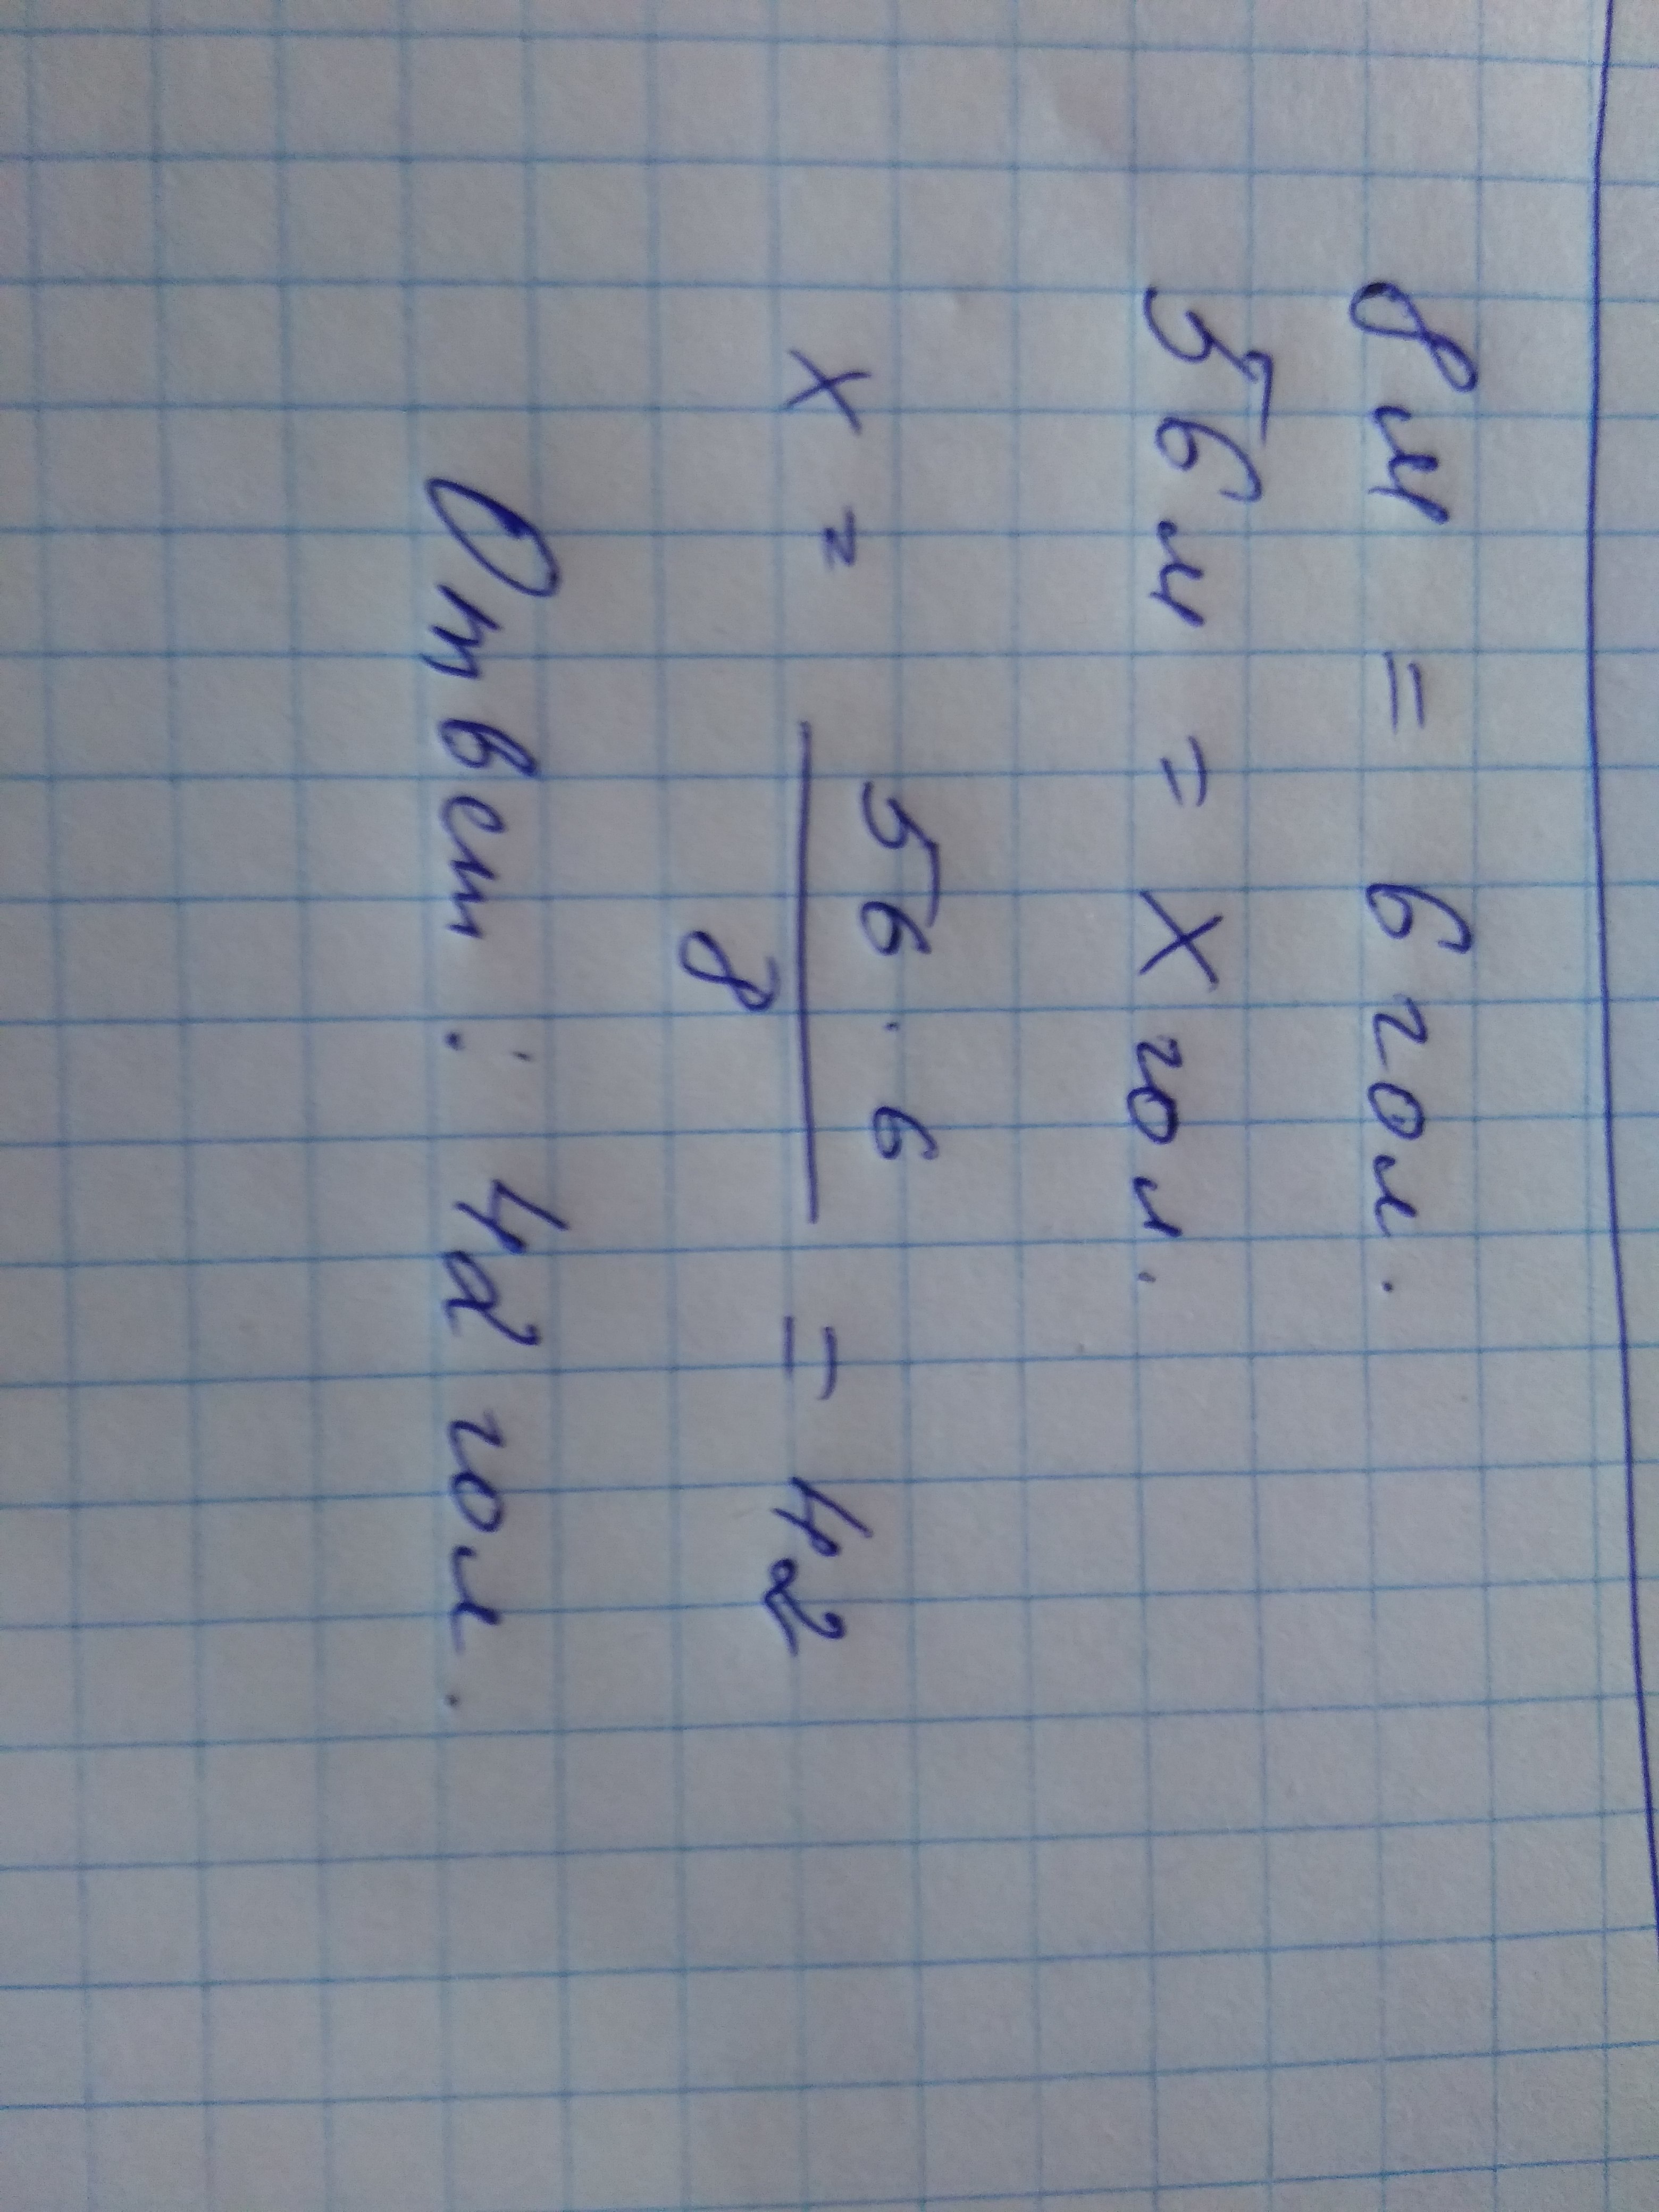 8 м = 6 гол.
56 м = х гол.
х = 56 · 6 / 8 = 42
Ответ: 42 гол.